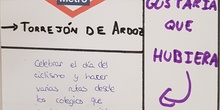 Metro
→ TORREJÓN DE ARDOZ
Celebrar el día del
ciclismo y hacer
varias rutas desde
los colegios que
GUSTARÍA
QUE
HUBIERA